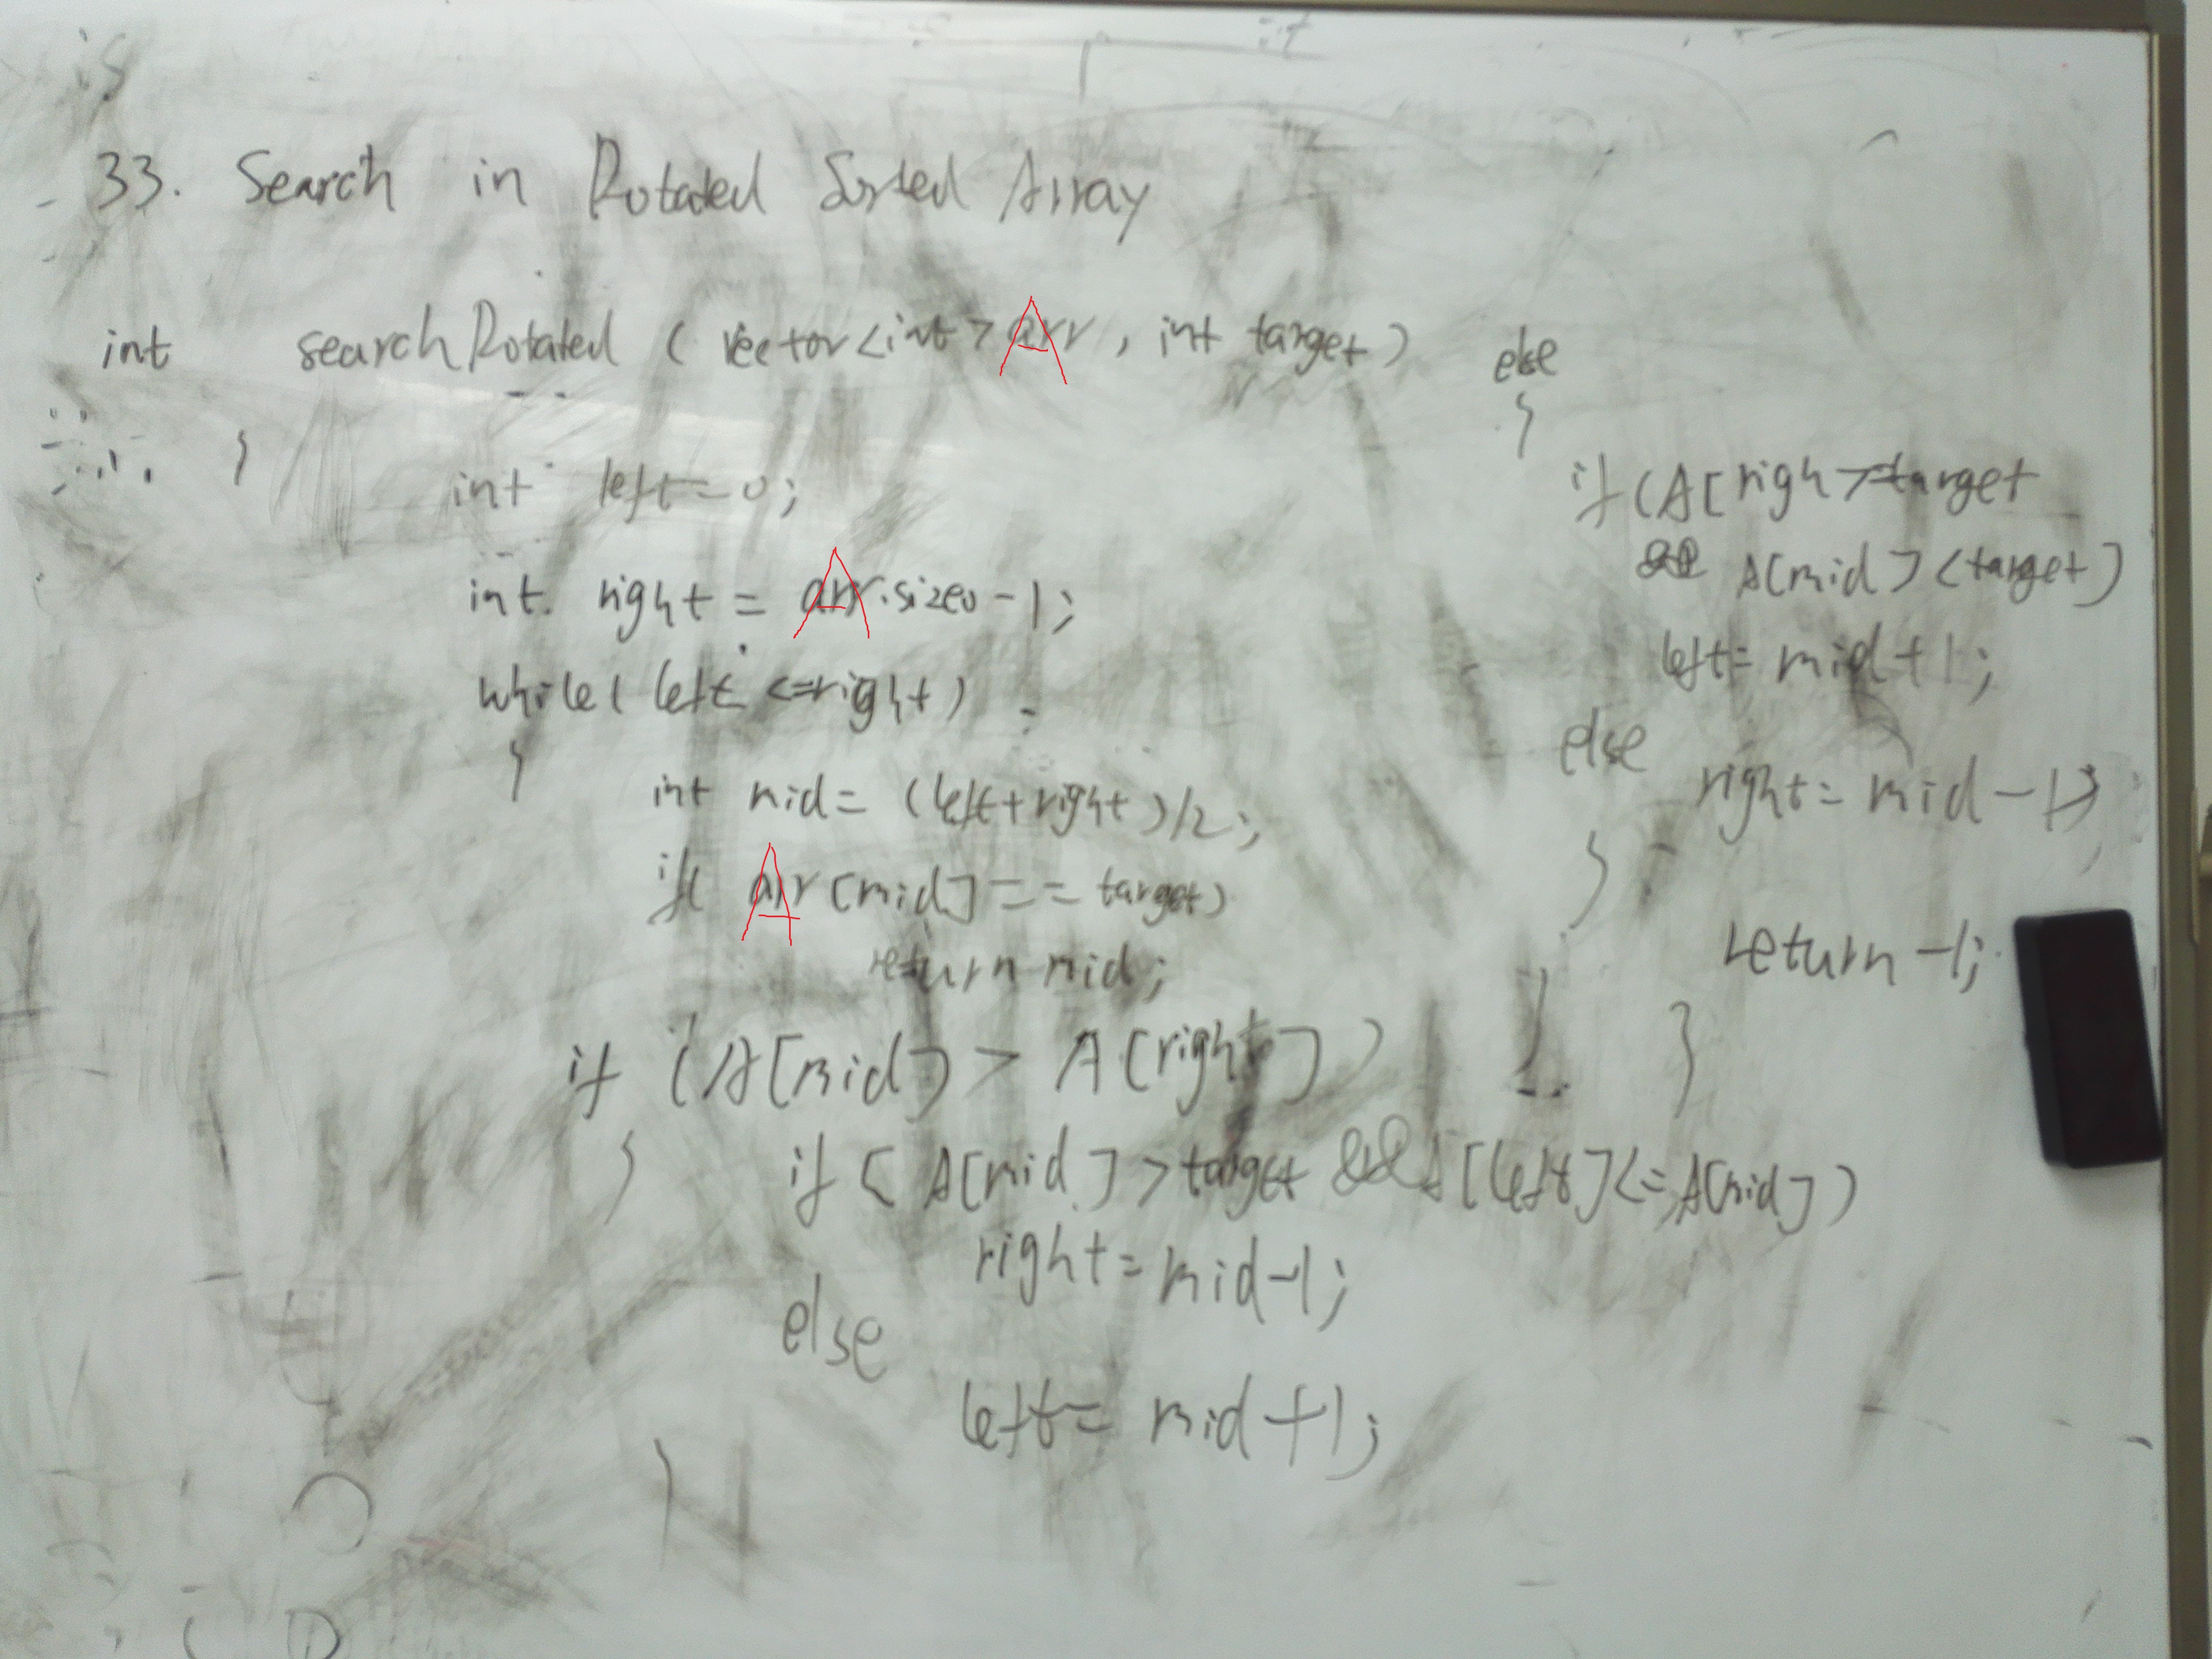 33. Search in Rotated Sorted Array
int searchRotated ( vector<int> A , int target)
{
int left=0;
int right = A.size() -1;
while( left <=right)
{
int mid= (left+right)/2;
if A[mid]== target)
return mid;
if (A[mid] > A[right])
{
if ( A[mid] >target && A[left]<=A[mid])
right=mid-1;
else
left= mid+1;
}
else
{
if (A[righ>=target
&& A[mid]<target)
left= mid+1;
else
right= mid-1;
}
return -1;
}